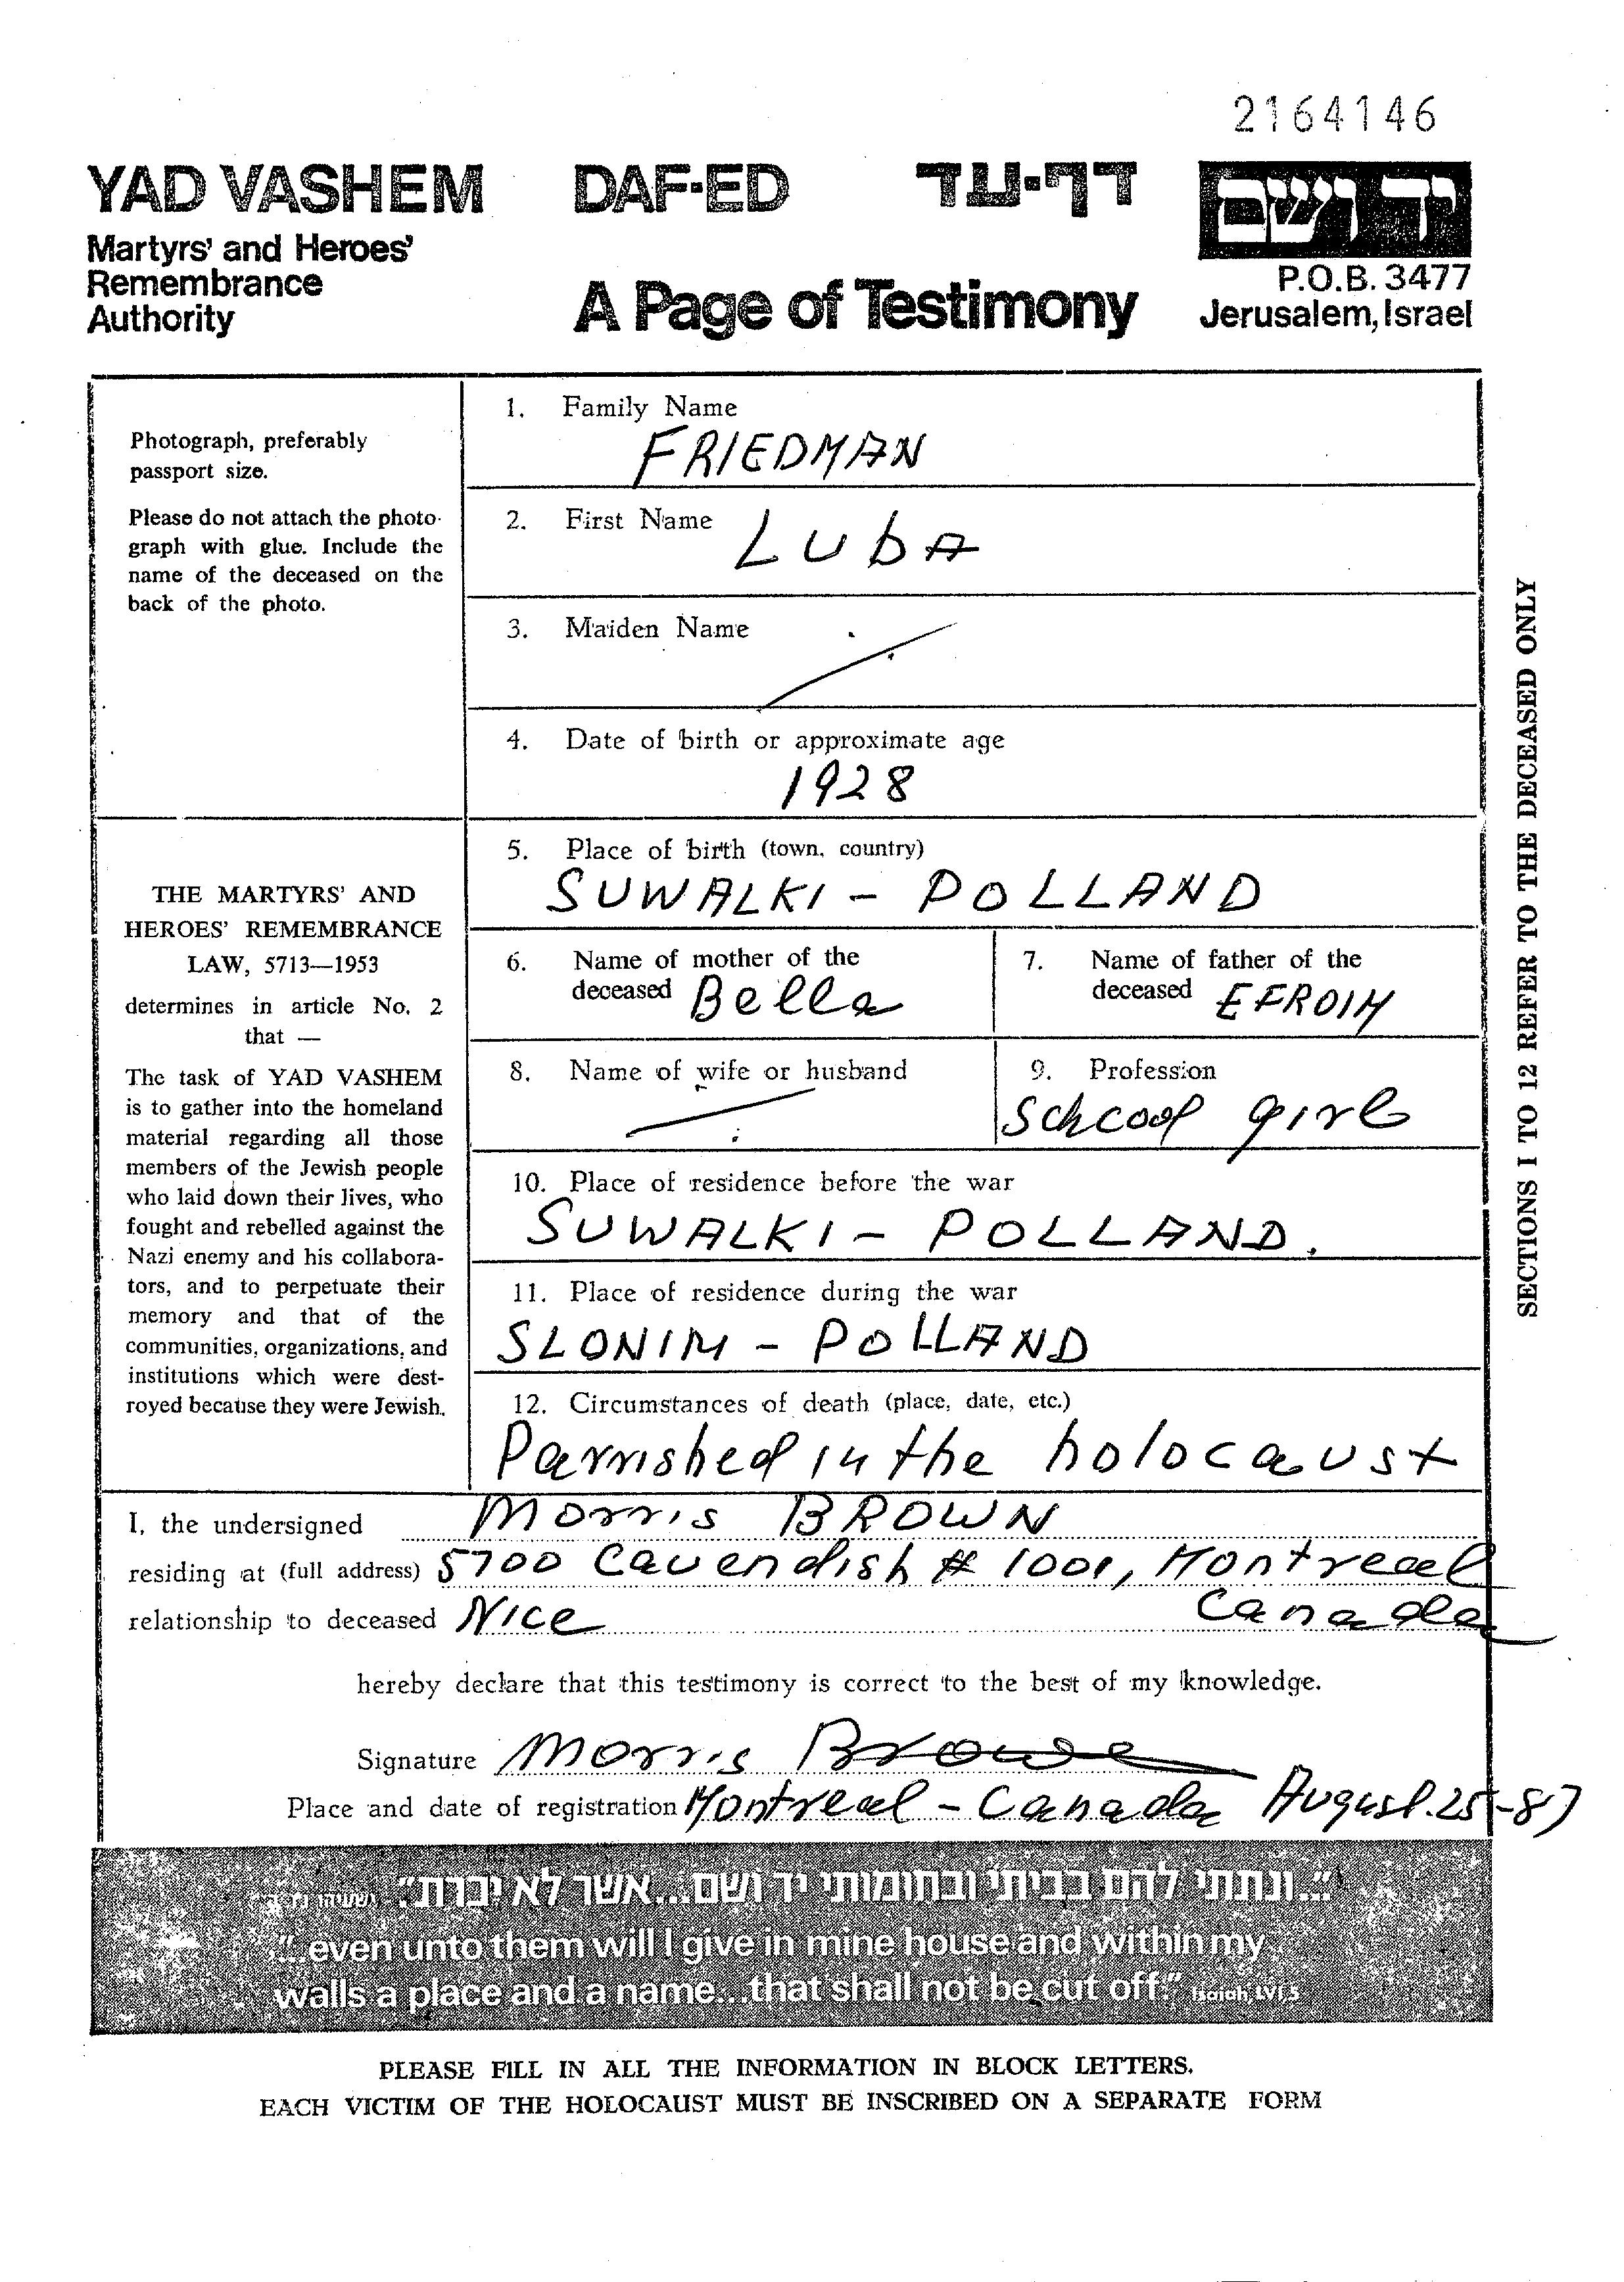 2164146
YAD VASHEM DAF-ED דף-עד יד ושם
Martyrs' and Heroes'
Remembrance
Authority
A Page of Testimony
P.O.B. 3477
Jerusalem, Israel
Photograph, preferably
passport size.
Please do not attach the photo-
graph with glue. Include the
name of the deceased on the
back of the photo.
THE MARTYRS' AND
HEROES' REMEMBRANCE
LAW, 5713—1953
determines in article No. 2
that —
The task of YAD VASHEM
is to gather into the homeland
material regarding all those
members of the Jewish people
who laid down their lives, who
fought and rebelled against the
Nazi enemy and his collabora-
tors, and to perpetuate their
memory and that of the
communities, organizations, and
institutions which were dest-
royed because they were Jewish.
1. Family Name
FRIEDMAN
2. First Name LUbA
3. Maiden Name
4. Date of birth or approximate age
1928
5. Place of birth (town, country)
SUWALKI - POLLAND
6. Name of mother of the
deceased Bella
7. Name of father of the
deceased EFROIM
8. Name of wife or husband
9. Profession
Schcool girl
10. Place of residence before the war
SUWALKI - POLLAND.
11. Place of residence during the war
SLONIM - POLLAND
12. Circumstances of death (place, date, etc.)
Parrished in the holocaust
SECTIONS 1 TO 12 REFER TO THE DECEASED ONLY
I, the undersigned Morris BROWN
residing at (full address) 5700 Cavendish # 1001, Montreal
Canada
relationship to deceased Nice
hereby declare that this testimony is correct to the best of my knowledge.
Signature Morris Brown
Place and date of registration Montreal - Canada August.25-87
"...ונתתי להם בביתי ובחומותי יד ושם...אשר לא יכרת". ישעיהו נו, ה
"...even unto them will I give in mine house and within my
walls a place and a name...that shall not be cut off." Isaiah, LVI,5
PLEASE FILL IN ALL THE INFORMATION IN BLOCK LETTERS.
EACH VICTIM OF THE HOLOCAUST MUST BE INSCRIBED ON A SEPARATE FORM